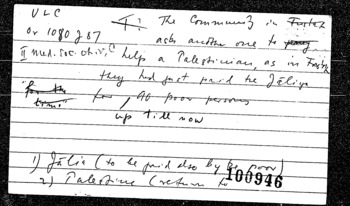 ULC
Or 1080 J 87
The Community in Fustat
asks another one to
II med. soc. help a Palestinian, as in
they had just paid the Jāliya
for, as poor persons
up till now
1) Jālia (to be paid also by the poor)
2) Palestine (return to
100946